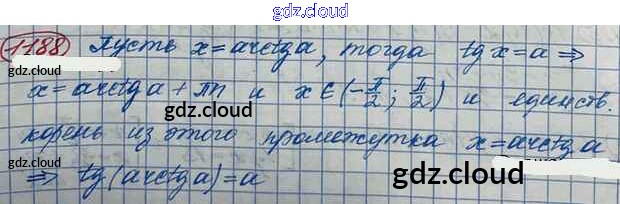 gdz.cloud
1188 Пусть x = arctg a, тогда tg x = a ⇒
gdz.cloud gdz.cloud
x = arctg a + πn и x ∈ (-π/2; π/2) и единств.
корень из этого промежутка x = arctg a
gdz.cloud gdz.cloud
⇒ tg(arctg a) = a gdz.cloud